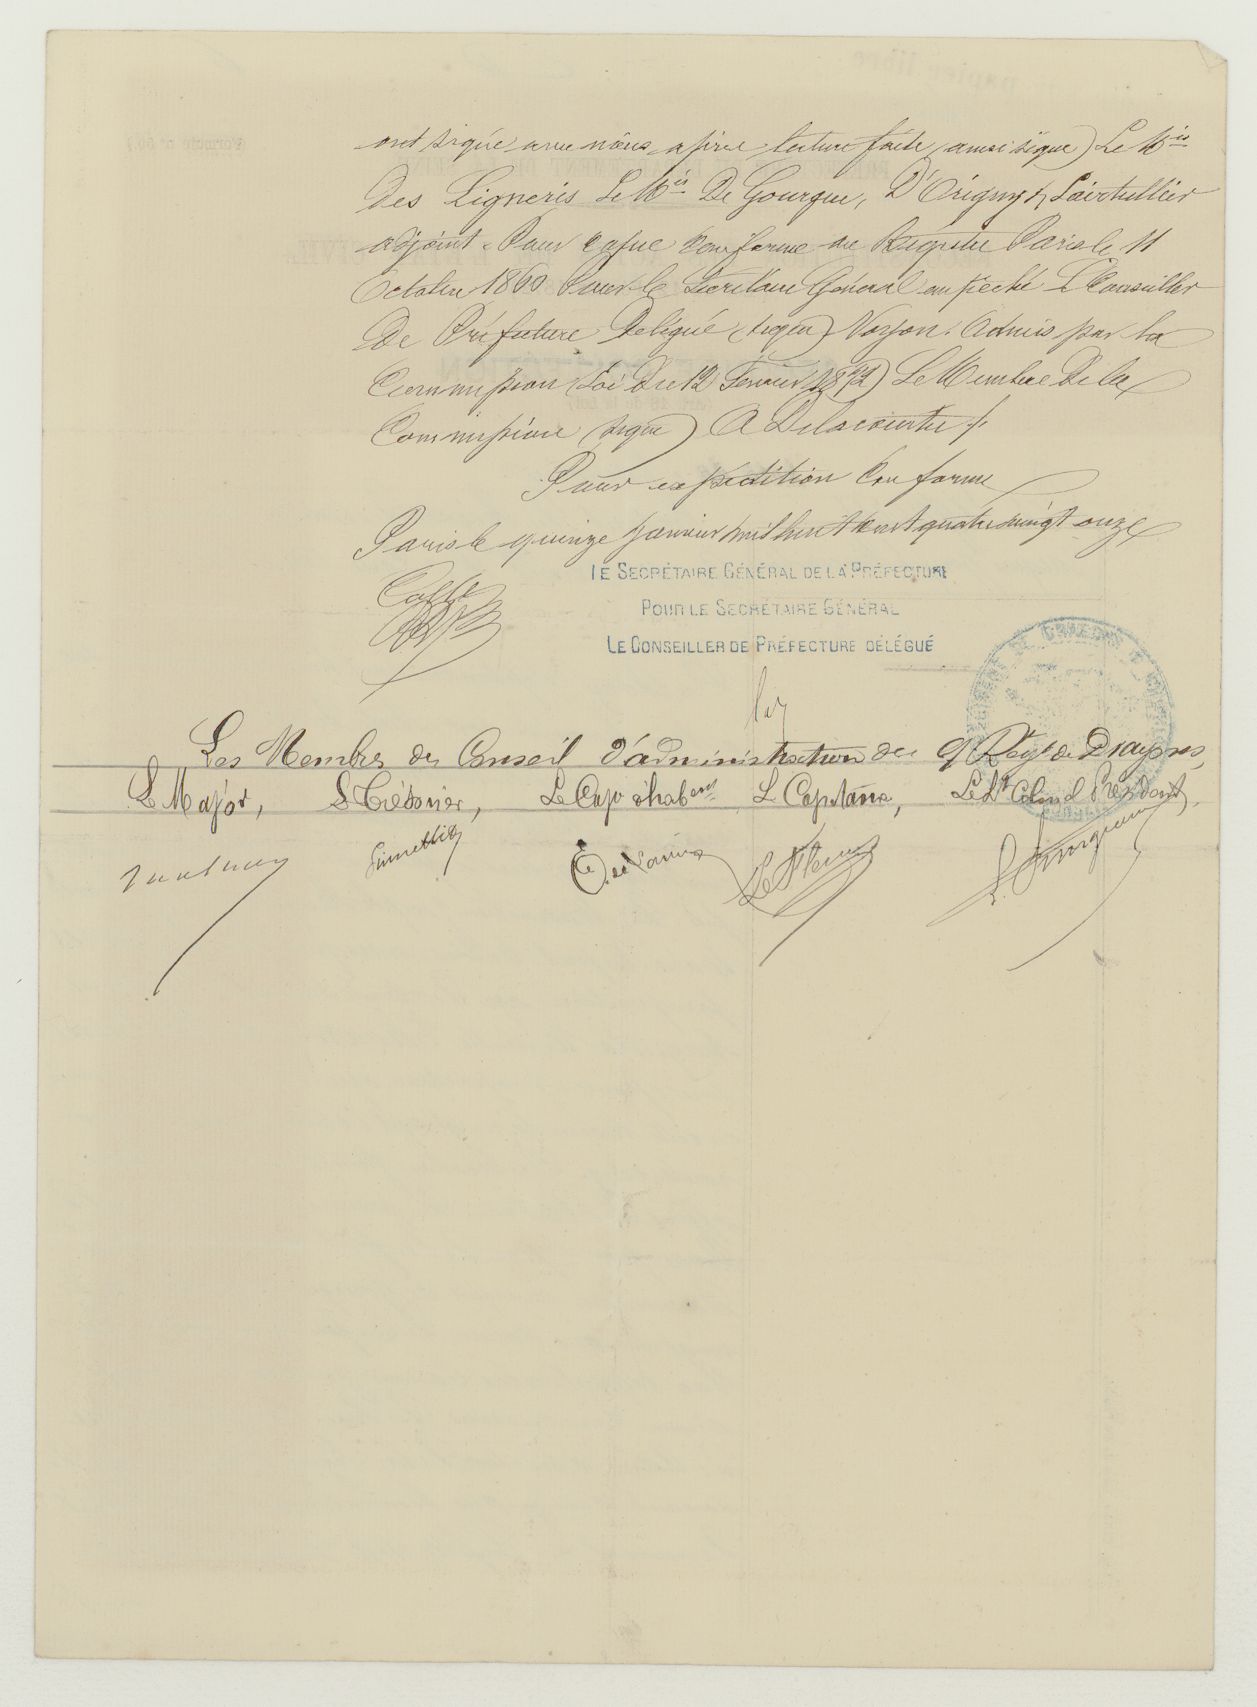 ont signé avec nous après lecture faite, ainsi signé) Le Mis
Des Ligneris Le Mis De Gourgue, D'Origny & Lairtullier
adjoint. Pour copie conforme au Registre Paris le 11
Octobre 1860 Pour le Secrétaire Général empêché Le Conseiller
De Préfecture Délégué (signé) Noyon. Admis par la
Commission (Loi du 12 Février 1872) Le Membre De la
Commission (signé) A Delacourtie /.
Pour expédition conforme
Paris le quinze Janvier mil huit cent quatre vingt onze
LE SECRÉTAIRE GÉNÉRAL DE LA PRÉFECTURE
POUR LE SECRÉTAIRE GÉNÉRAL
LE CONSEILLER DE PRÉFECTURE DÉLÉGUÉ
Les Membres du Conseil d'administration du 9e Régt de Dragons,
Le Major, Le Trésorier, Le Cape d'habent Le Capitaine, Le Lt Colonel Président,